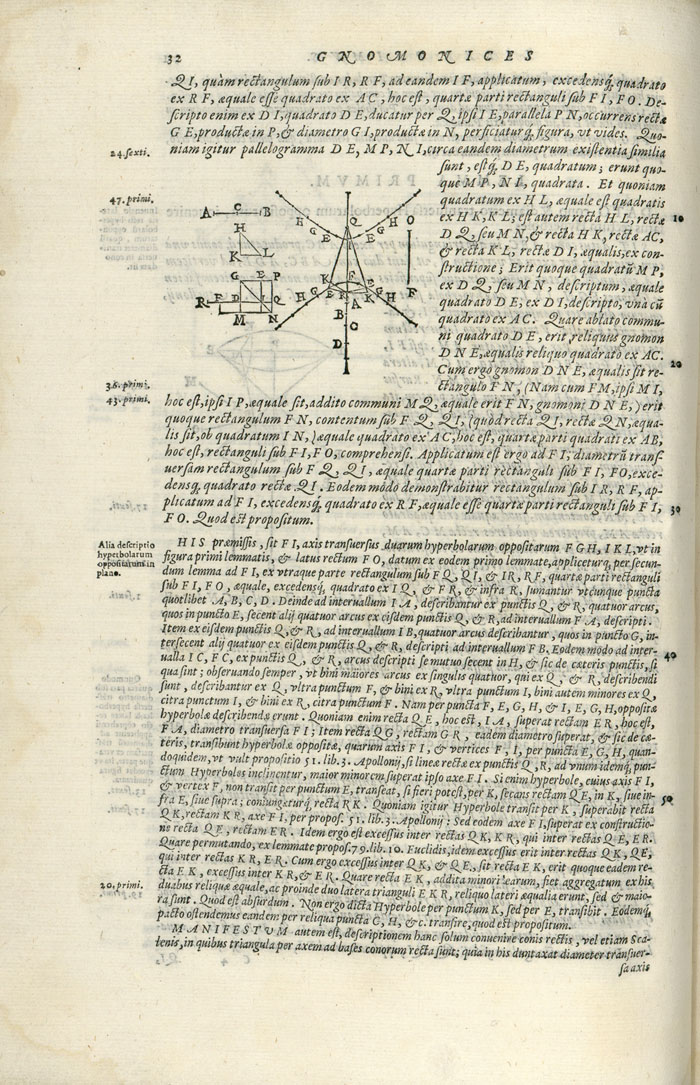 32 GNOMONICES
QI, quàm rectangulum sub IR, RF, ad eandem IF, applicatum, excedensq́; quadrato
ex RF, æquale esse quadrato ex AC, hoc est, quartæ parti rectanguli sub FI, FO. De-
scripto enim ex DI, quadrato DE, ducatur per Q, ipsi IE, parallela PN, occurrens rectæ
GE, productæ in P, & diametro GI, productæ in N, perficiaturq́; figura, vt vides. Quo-
24. sexti.
niam igitur pallelogramma DE, MP, NI, circa eandem diametrum existentia similia
sunt, estq́; DE, quadratum; erunt quo-
que MP, NI, quadrata. Et quoniam
47. primi.
quadratum ex HL, æquale est quadratis
ex HK, KL; est autem recta HL, rectæ 10
DQ, seu MN, & recta HK, rectæ AC,
& recta KL, rectæ DI, æqualis, ex con-
structione; Erit quoque quadratũ MP,
ex DQ, seu MN, descriptum, æquale
quadrato DE, ex DI, descripto, vnà cũ
quadrato ex AC. Quare ablato commu-
ni quadrato DE, erit, reliquus gnomon
DNE, æqualis reliquo quadrato ex AC.
Cum ergo gnomon DNE, æqualis sit re- 20
36. primi.
ctangulo FN, (Nam cum FM, ipsi MI,
43. primi.
hoc est, ipsi IP, æquale sit, addito communi MQ, æquale erit FN, gnomoni DNE,) erit
quoque rectangulum FN, contentum sub FQ, QI, (quòd recta QI, rectæ QN, æqua-
lis sit, ob quadratum IN,) æquale quadrato ex AC, hoc est, quartæ parti quadrati ex AB,
hoc est, rectanguli sub FI, FO, comprehensi. Applicatum est ergo ad FI, diametrũ trans-
uersam rectangulum sub FQ, QI, æquale quartæ parti rectanguli sub FI, FO, exce-
densq́; quadrato rectæ QI. Eodem modo demonstrabitur rectangulum sub IR, RF, ap-
plicatum ad FI, excedensq́; quadrato ex RF, æquale esse quartæ parti rectanguli sub FI, 30
FO. Quod est propositum.
A C B
H
K L
G E P
R F D I Q
M N
H G E Q E G H O
K I K
H G E R F E G H F
A
B
C
D
Alia descriptio
hyperbolarum
oppositarum in
plano.
HIS præmissis, sit FI, axis transuersus duarum hyperbolarum oppositarum FGH, IKL, vt in
figura primi lemmatis, & latus rectum FO, datum ex eodem primo lemmate, appliceturq́; per secun-
dum lemma ad FI, ex vtraque parte rectangulum sub FQ, QI, & IR, RF, quartæ parti rectanguli
sub FI, FO, æquale, excedensq́; quadrato ex IQ, & FR, & infra R, sumantur vtcunque puncta
quotlibet A, B, C, D. Deinde ad interuallum IA, describantur ex punctis Q, & R, quatuor arcus,
quos in puncto E, secent alij quatuor arcus ex eisdem punctis Q, & R, ad interuallum FA, descripti.
Item ex eisdem punctis Q, & R, ad interuallum IB, quatuor arcus describantur, quos in puncto G, in-
tersecent alij quatuor ex eisdem punctis Q, & R, descripti ad interuallum FB. Eodem modo ad inter- 40
ualla IC, FC, ex punctis Q, & R, arcus descripti se mutuo secent in H, & sic de cæteris punctis, si
qua sint; obseruando semper, vt bini maiores arcus ex singulis quatuor, qui ex Q, & R, describendi
sunt, describantur ex Q, vltra punctum F, & bini ex R, vltra punctum I, bini autem minores ex Q,
citra punctum I, & bini ex R, citra punctum F. Nam per puncta F, E, G, H, & I, E, G, H, oppositæ
hyperbolæ describendæ erunt. Quoniam enim recta QE, hoc est, IA, superat rectam ER, hoc est,
FA, diametro transuersa FI; Item recta QG, rectam GR, eadem diametro superat, & sic de cæ-
teris, transibunt hyperbolæ oppositæ, quarum axis FI, & vertices F, I, per puncta E, G, H, quan-
doquidem, vt vult propositio 51. lib. 3. Apollonij, si lineæ rectæ ex punctis Q, R, ad vnum idemq́; pun-
ctum Hyperboles inclinentur, maior minorem superat ipso axe FI. Si enim hyperbole, cuius axis FI,
& vertex F, non transit per punctum E, transeat, si fieri potest, per K, secans rectam QE, in K, siue in- 50
fra E, siue supra; coniungaturq́; recta RK. Quoniam igitur Hyperbole transit per K, superabit recta
QK, rectam KR, axe FI, per propos. 51. lib. 3. Apollonij: Sed eodem axe FI, superat ex constructio-
ne recta QE, rectam ER. Idem ergo est excessus inter rectas QK, KR, qui inter rectas QE, ER.
Quare permutando, ex lemmate propos. 79. lib. 10. Euclidis, idem excessus erit inter rectas QK, QE,
qui inter rectas KR, ER. Cum ergo excessus inter QK, & QE, sit recta EK, erit quoque eadem re-
cta EK, excessus inter KR, & ER. Quare recta EK, addita minori earum, fiet aggregatum ex his
20. primi.
duabus reliquæ æquale, ac proinde duo latera trianguli EKR, reliquo lateri æqualia erunt, sed & maio-
ra sunt. Quod est absurdum. Non ergo dicta Hyperbole per punctum K, sed per E, transibit. Eodemq́;
pacto ostendemus eandem per reliqua puncta G, H, &c. transire, quod est propositum.
MANIFESTVM autem est, descriptionem hanc solum conuenire conis rectis, vel etiam Sca-
lenis, in quibus triangula per axem ad bases conorum recta sunt; quia in his duntaxat diameter transuer-
sa axis